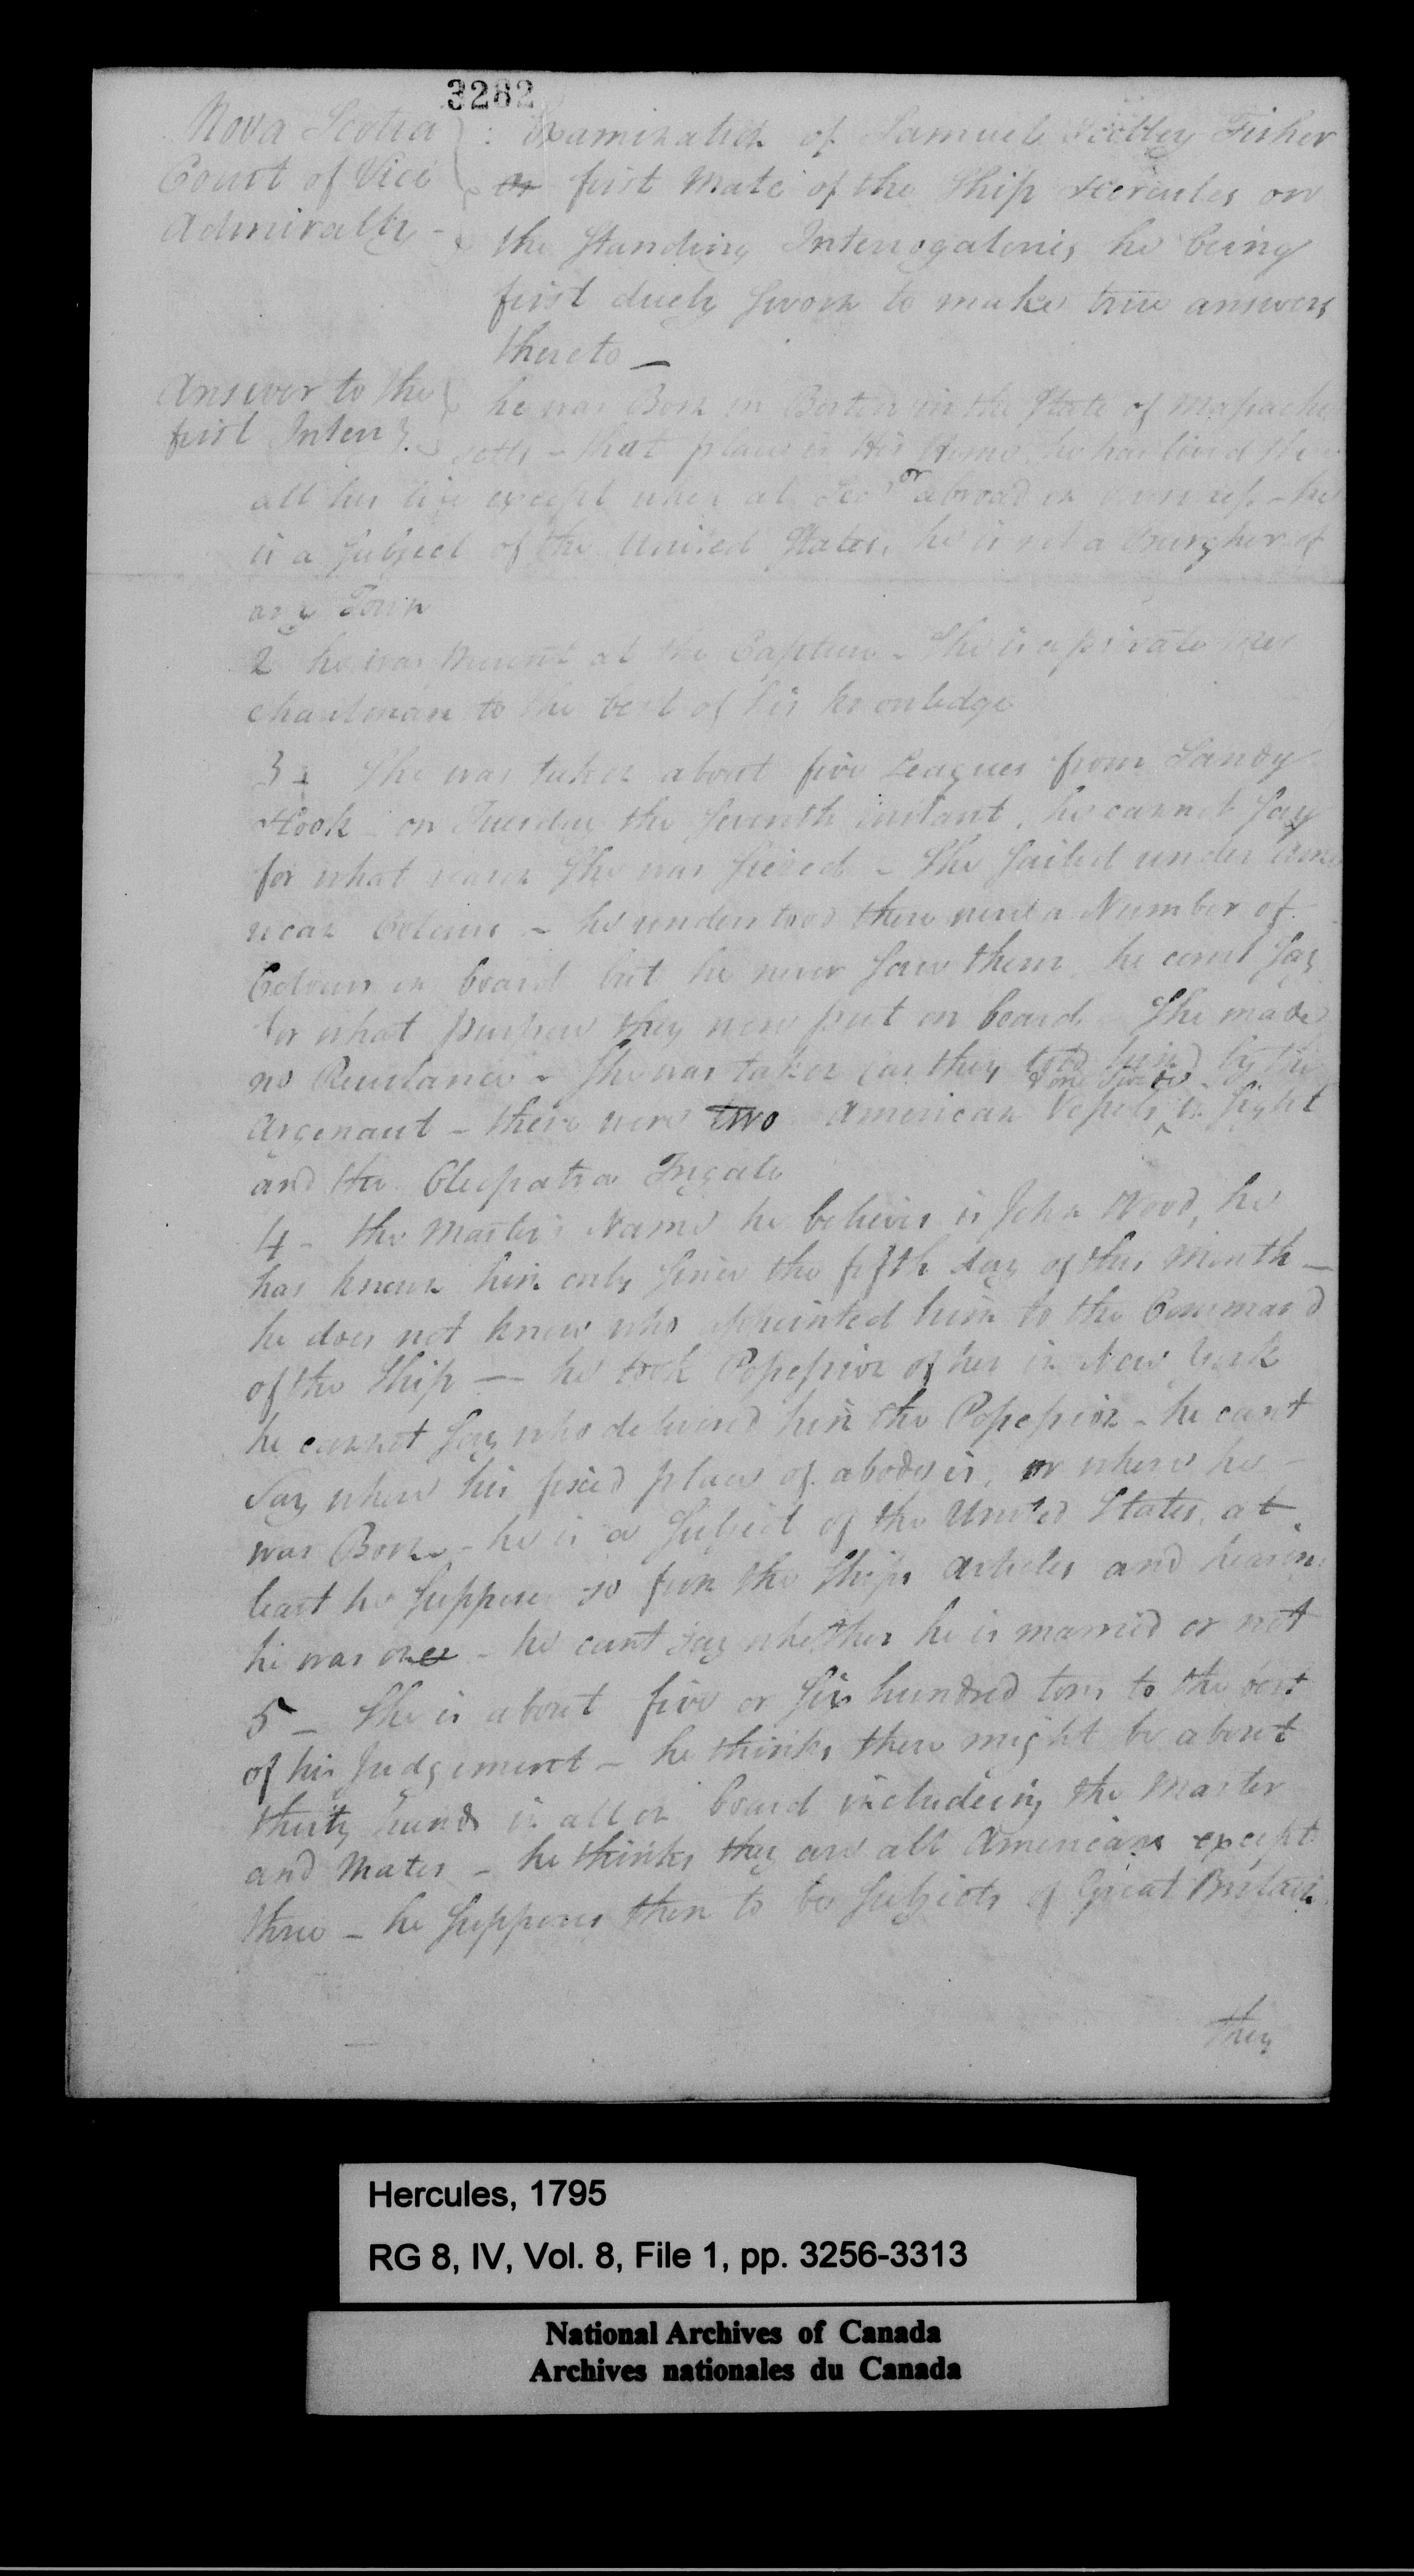 3282
Nova Scotia
Court of Vice
Admiralty -
: Examination of Samuel Fisher
first Mate of the Ship Hercules on
the Standing Interrogatories he being
first duely Sworn to make true answers
thereto —
Answer to the
first Interry.
he was Born in Boston in the State of Massachu
setts - that place is His Home, he has lived there
all his life except when at Sea or abroad - he
is a Subject of the United States, he is not a Burgher of
any Town
2 he was present at the Capture - She is a private mer
chantman to the best of his knowledge
3 - She was taken about five Leagues from Sandy
Hook - on Tuesday the Seventh instant, he cannot Say
for what reason She was Seized - She Sailed under Ame
rican Colours - he understood there were a Number of
Colours on board but he never Saw them he cannt Say
for what purpose they were put on board She made
no Resistance - She was taken (as they told him) by the
Argonaut - there were two American Vessels & one in Sight
and the Cleopatra Frigate
4 - the Master's Name he believes is John Wood, he
has known him only Since the fifth day of this Month —
he does not know who appointed him to the Command
of the Ship — he took Possession of her in New York
he cannot Say who delivered him the Possession - he cant
Say where his fixed place of abode is, or where he -
was Born - he is a Subject of the United States, at
least he Supposes so from the Ships Articles and hearing
he was one - he cant Say whether he is married or not
5 - She is about five or Six hundred tons to the best
of his Judgement - he thinks there might be about
thirty hands in all on board includeing the Master
and Mates - he thinks they are all Americans except
three - he Supposes them to be Subjects of Great Britain
they
Hercules, 1795
RG 8, IV, Vol. 8, File 1, pp. 3256-3313
National Archives of Canada
Archives nationales du Canada